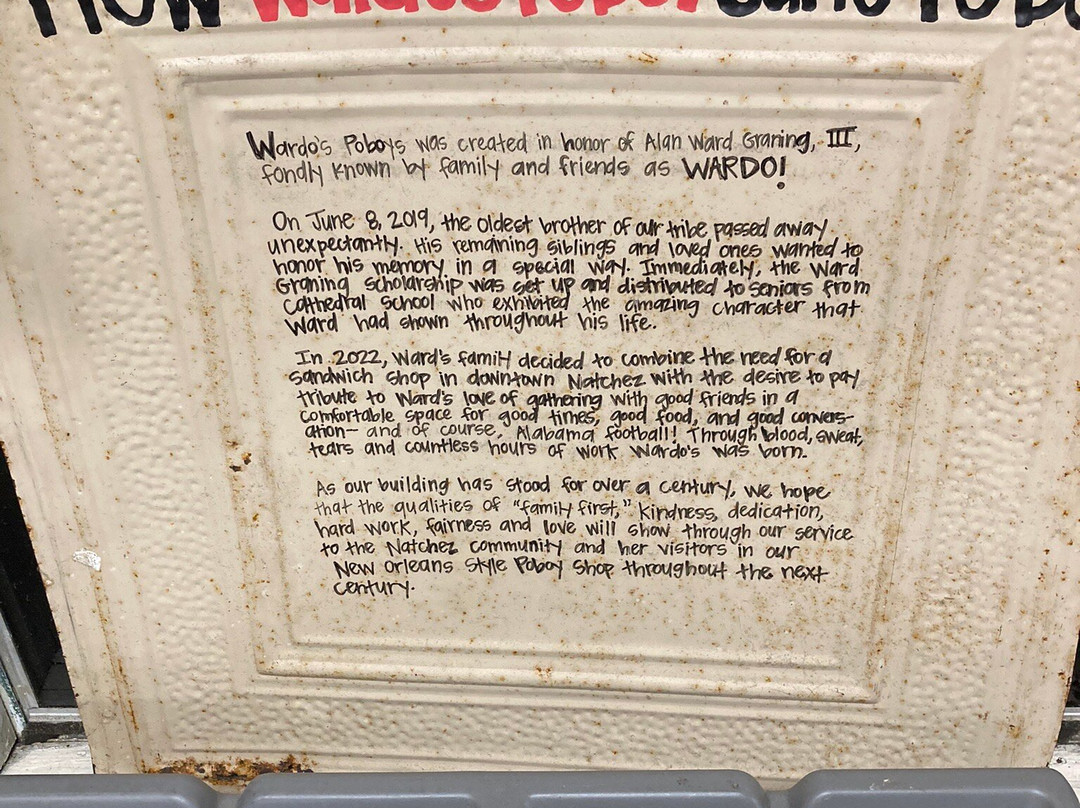 HOW Wardo's Poboys came to be
Wardo's Poboys was created in honor of Alan Ward Graning, III,
fondly known by family and friends as WARDO!
On June 8, 2019, the oldest brother of our tribe passed away
unexpectantly. His remaining siblings and loved ones wanted to
honor his memory in a special way. Immediately, the Ward
Graning scholarship was set up and distributed to seniors from
Cathedral School who exhibited the amazing character that
Ward had shown throughout his life.
In 2022, Ward's family decided to combine the need for a
sandwich shop in downtown Natchez with the desire to pay
tribute to Ward's love of gathering with good friends in a
comfortable space for good times, good food, and good convers-
ation- and of course, Alabama football! Through blood, sweat,
tears and countless hours of work Wardo's was born.
As our building has stood for over a century, we hope
that the qualities of "family first," kindness, dedication,
hard work, fairness and love will show through our service
to the Natchez community and her visitors in our
New Orleans Style Poboy Shop throughout the next
century.